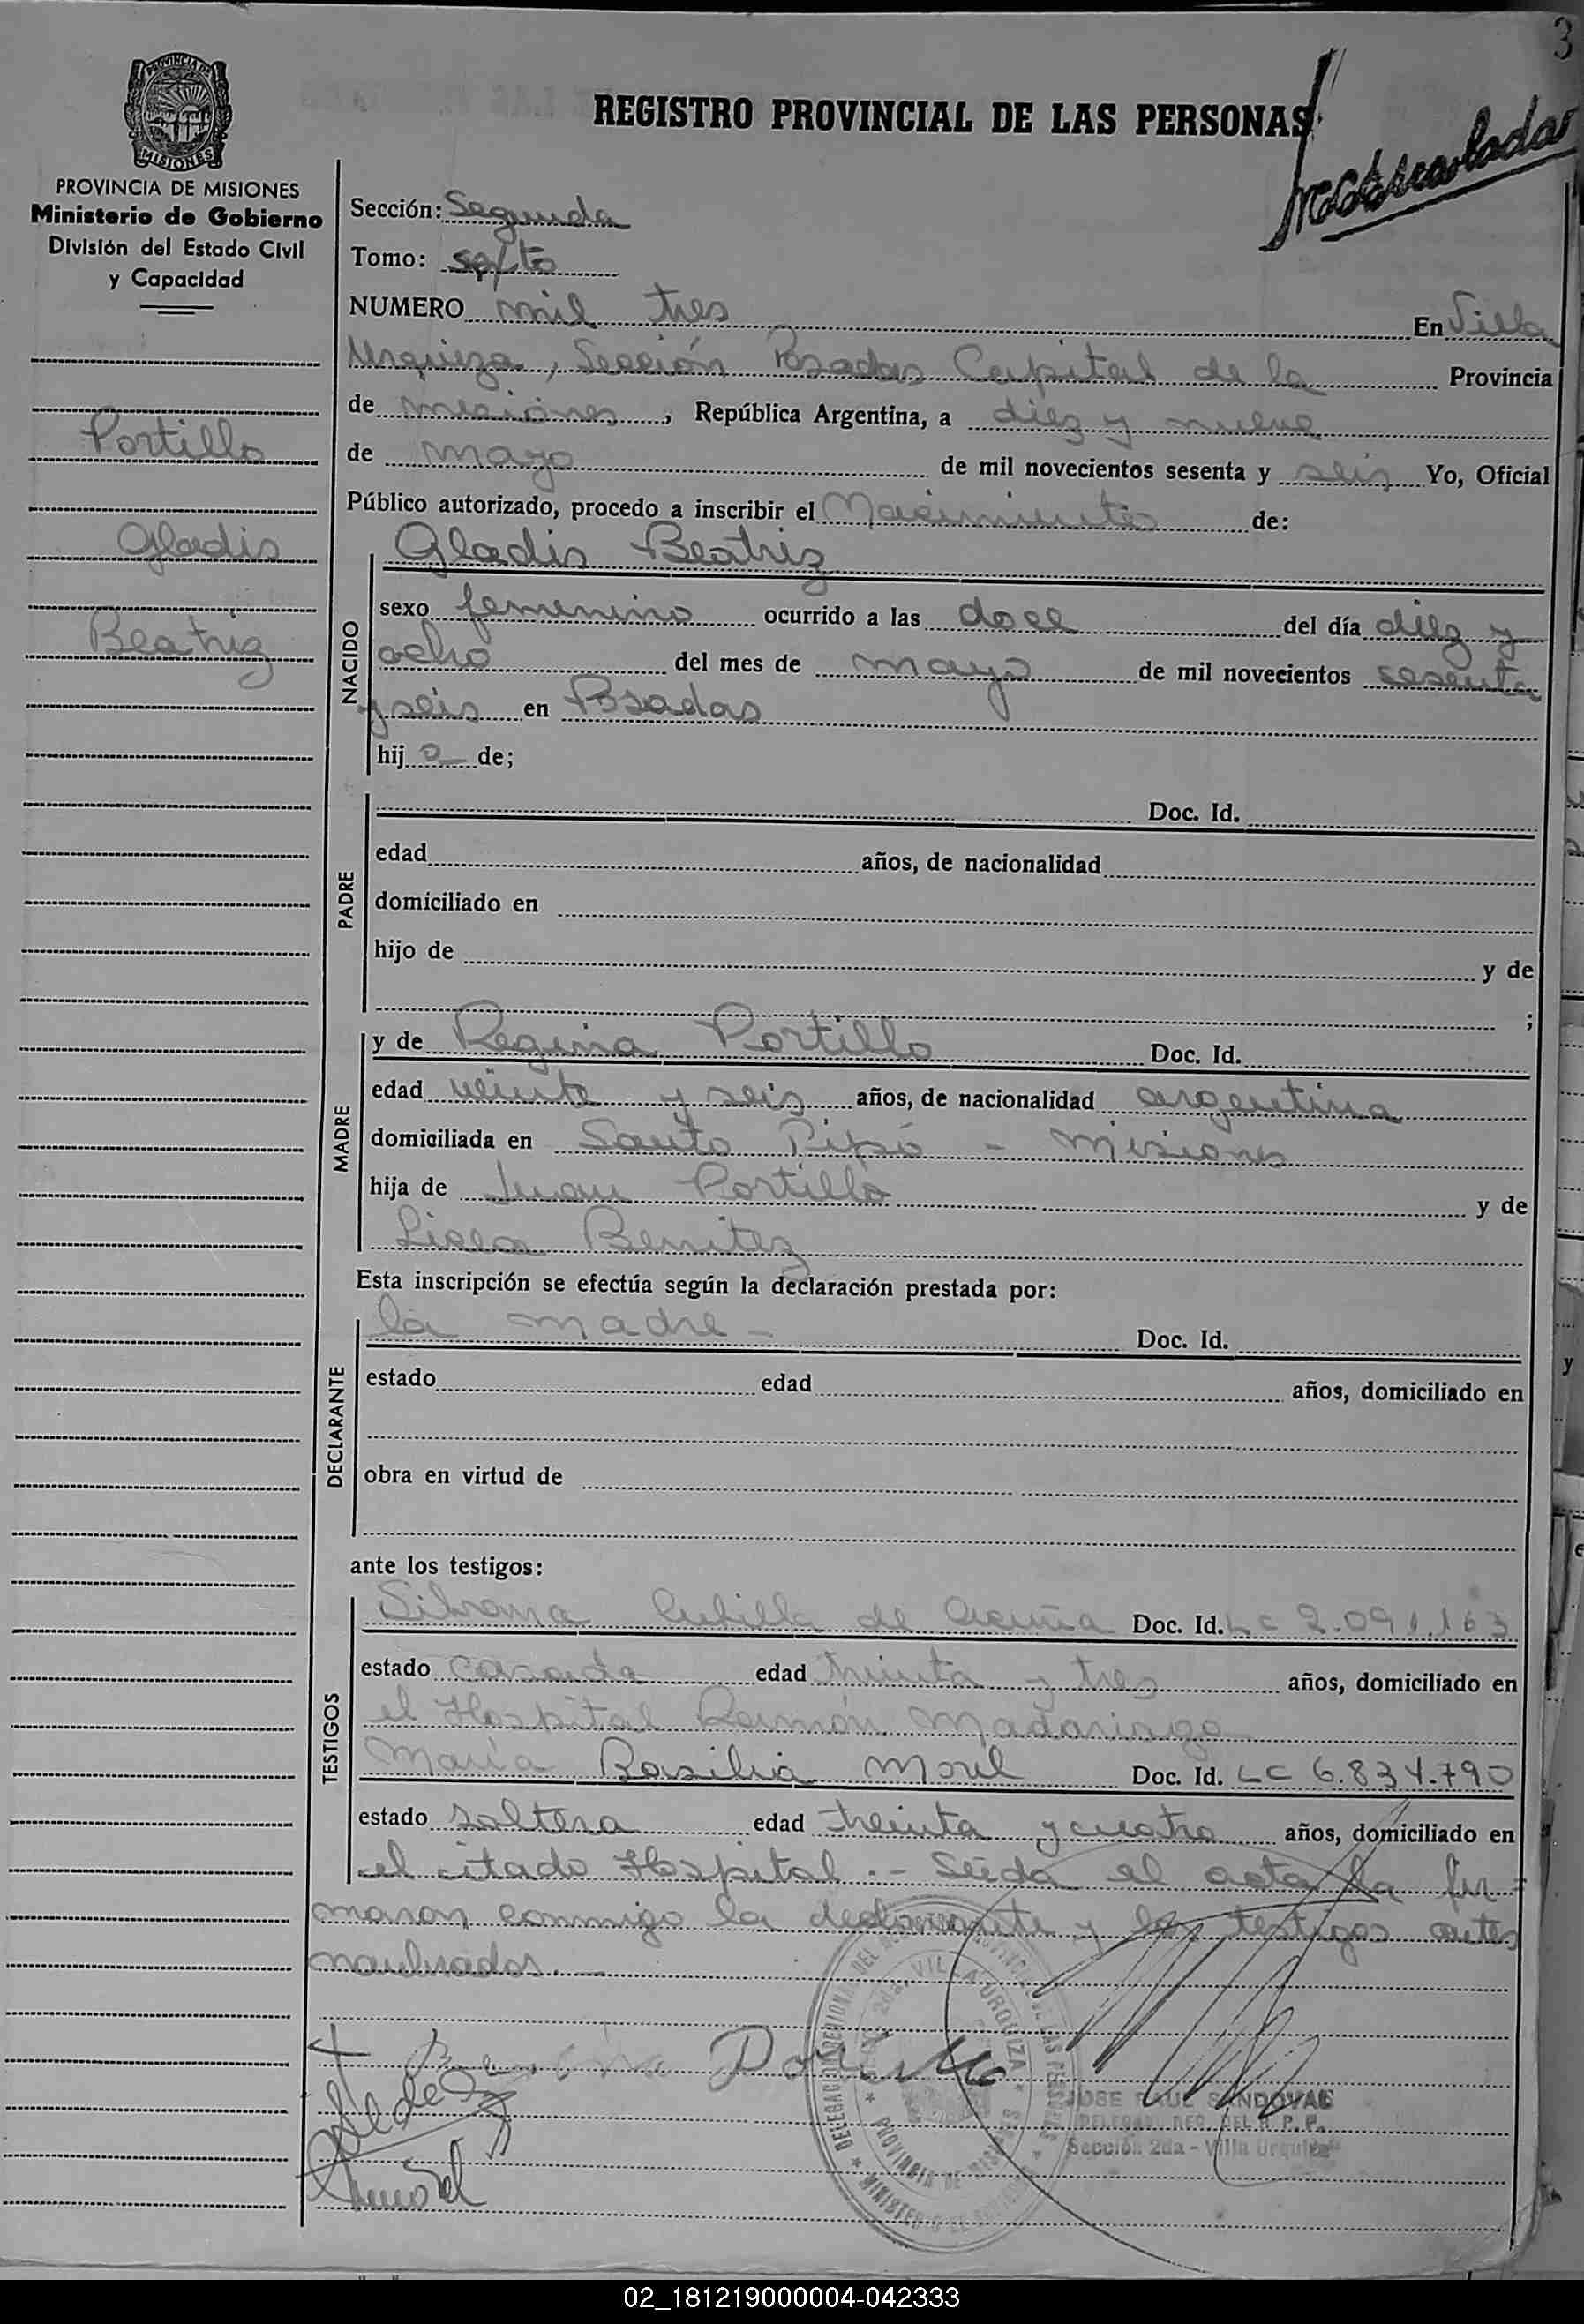 3
REGISTRO PROVINCIAL DE LAS PERSONAS
MISIONES
PROVINCIA DE MISIONES
Ministerio de Gobierno
División del Estado Civil
y Capacidad
Portillo
Gladis
Beatriz
Sección: Segunda
Tomo: sexto
NUMERO mil tres En Villa
Urquiza, Sección Posadas Capital de la Provincia
de misiones, República Argentina, a diez y nueve
de mayo de mil novecientos sesenta y seis Yo, Oficial
Público autorizado, procedo a inscribir el Nacimiento de:
NACIDO
Gladis Beatriz
sexo femenino ocurrido a las doce del día diez y
ocho del mes de mayo de mil novecientos sesenta
y seis en Posadas
hij a de;
PADRE
Doc. Id.
edad años, de nacionalidad
domiciliado en
hijo de y de
;
MADRE
y de Regina Portillo Doc. Id.
edad veinte y seis años, de nacionalidad argentina
domiciliada en Santo Pipó - Misiones
hija de Juan Portillo y de
Benitez
Esta inscripción se efectúa según la declaración prestada por:
DECLARANTE
la madre - Doc. Id.
estado edad años, domiciliado en
obra en virtud de
ante los testigos:
TESTIGOS
Silvana Cubilla de Acuña Doc. Id. LC 2.091.163
estado casada edad treinta y tres años, domiciliado en
el Hospital Ramón Madariaga
María Basilia Morel Doc. Id. LC 6.834.790
estado soltera edad treinta y cuatro años, domiciliado en
el citado Hospital.- Leída el acta la fir=
maron conmigo la declarante y los testigos antes
nombrados.
Portillo
DELEGACION REGIONAL DEL REGISTRO PROVINCIAL DE LAS PERSONAS
2da. VILLA URQUIZA
PROVINCIA DE MISIONES
MINISTERIO DE GOBIERNO
JOSE RAUL SANDOVAL
DELEGADO REG. DEL R. P. P.
Sección 2da - Villa Urquiza
02_181219000004-042333